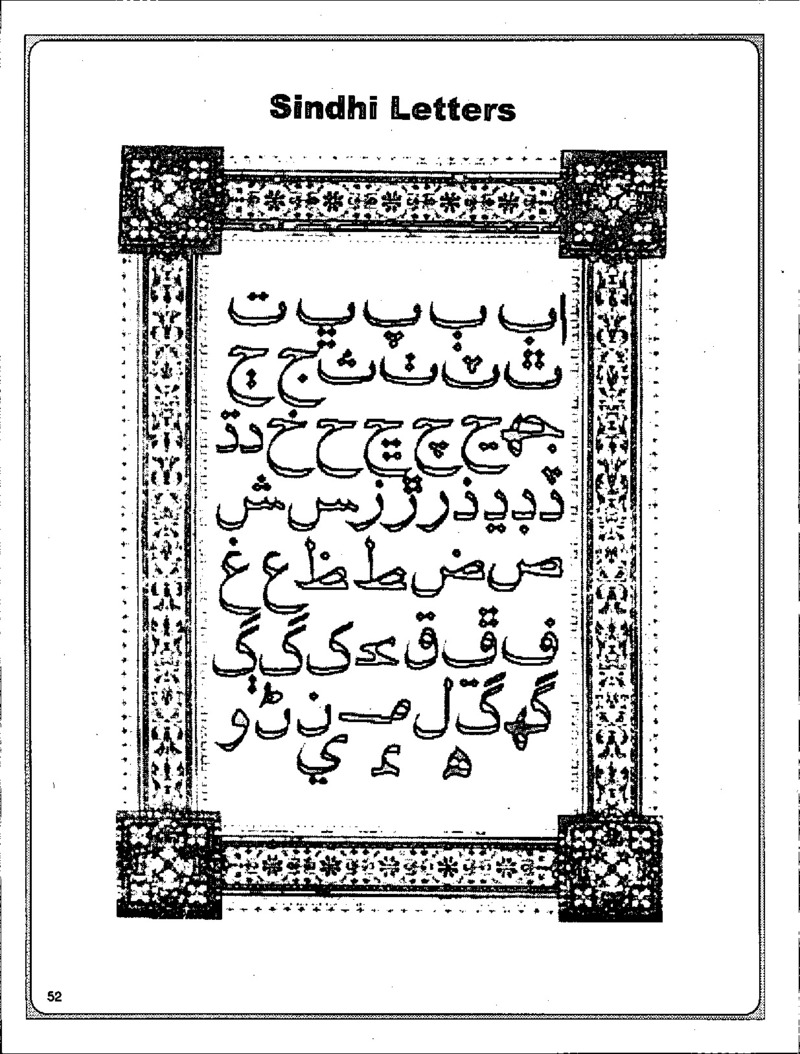 Sindhi Letters
ا ب ٻ پ ڀ ت
ٿ ٽ ٺ ث ج ڄ
جھ ڃ چ ڇ ح خ د ڌ
ڏ ڊ ڍ ذ ر ڙ ز س ش
ص ض ط ظ ع غ
ف ڦ ق ڪ ک گ ڳ
گھ ڱ ل م ن ڻ و
ھ ء ي
52